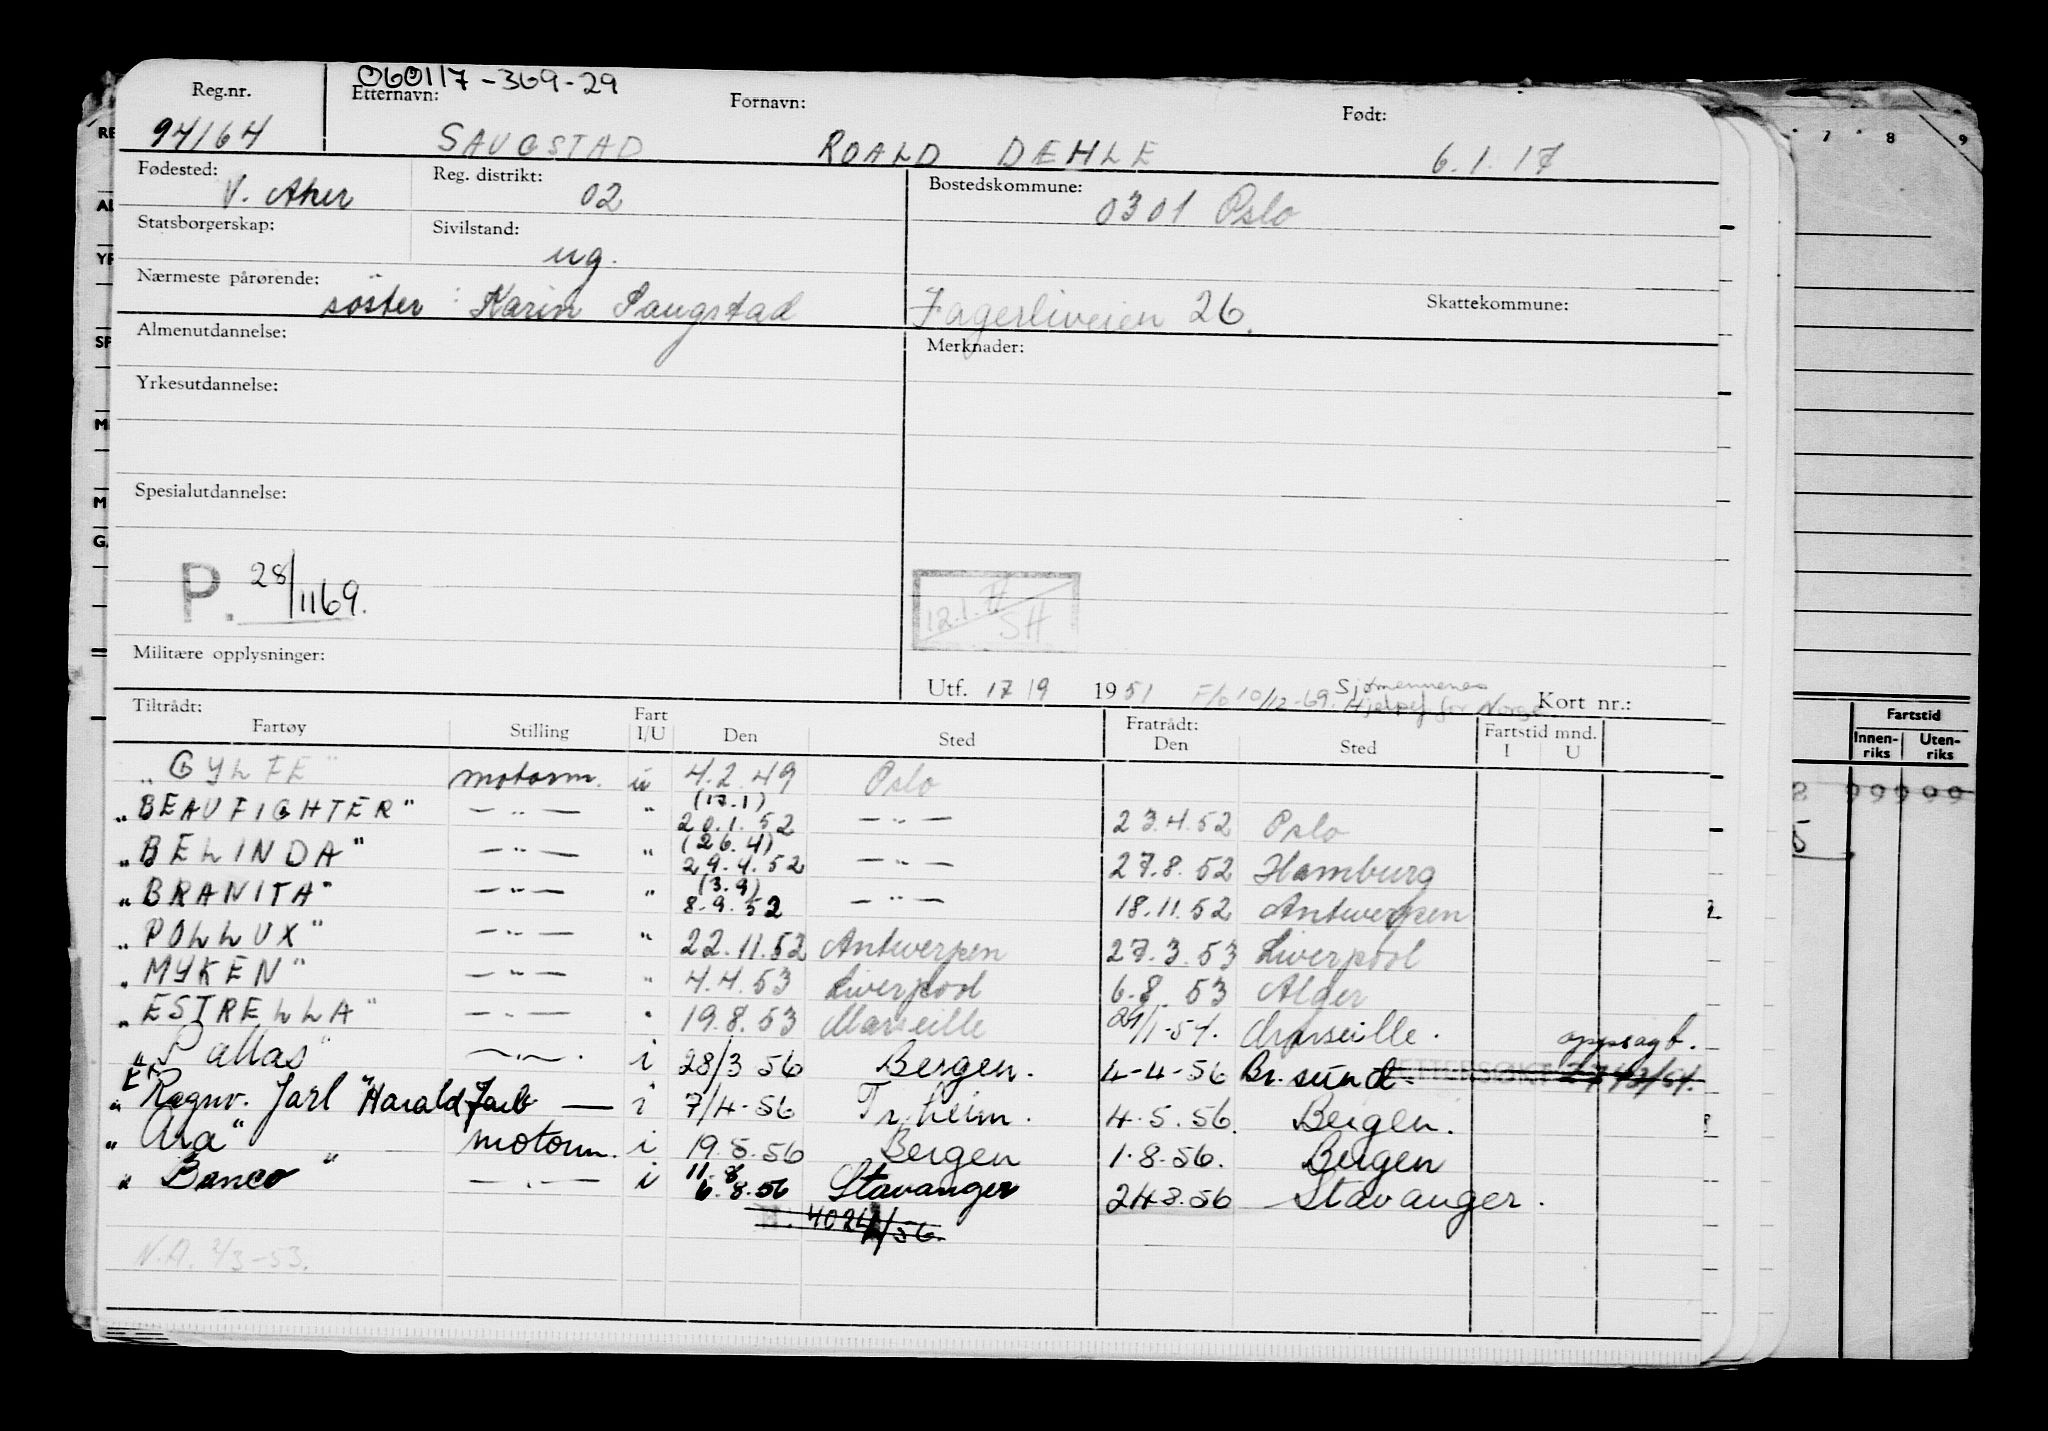 060117-369-29
Reg.nr. Etternavn: Fornavn: Født:
94164 SAUGSTAD ROALD DEHLE 6.1.17
Fødested: V. Aker Reg. distrikt: 02 Bostedskommune: 0301 Oslo
Statsborgerskap: Sivilstand: ug.
Nærmeste pårørende: søster : Karin Saugstad Fagerliveien 26. Skattekommune:
Almenutdannelse: Merknader:
Yrkesutdannelse:
Spesialutdannelse:
P. 28/1169.
12.1. SH
Militære opplysninger:
Utf. 17/9 1951 F/o 10/12-69. Sjømennenes Hjelpef. for Norge Kort nr.:
Tiltrådt: Fart Fratrådt: Fartstid mnd.
Fartøy Stilling I/U Den Sted Den Sted I U
"GYLFE" motorm. u 4.2.49 Oslo
"BEAUFIGHTER" — " — " (17.1) 20.1.52 — " — 23.4.52 Oslo
"BELINDA" — " — " (26.4) 29.4.52 — " — 27.8.52 Hamburg
"BRANITA" — " — " (3.9) 8.9.52 — " — 18.11.52 Antwerpen
"POLLUX" — " — " 22.11.52 Antwerpen 27.3.53 Liverpool
"MYKEN" — " — " 4.4.53 Liverpool 6.8.53 Alger
"ESTRELLA" — " — " 19.8.53 Marseille 21/1-54. Marseille. oppsagt.
"Pallas" — " — i 28/3 56 Bergen. 4-4-56 Br. sund. ETTERSØKT 2743/54.
" Ragnv. Jarl "Harald Jarl — i 7/4-56 Tr.heim. 4.5.56. Bergen.
" Ara" motorm. i 19.5.56 Bergen 1.8.56. Bergen
" Banco " — " — i 11.8 6.8.56 Stavanger 24.8.56 Stavanger.
4024/56.
N.A. 2/3-53.
7 8 9
Fartstid
Innen-riks Uten-riks
99999